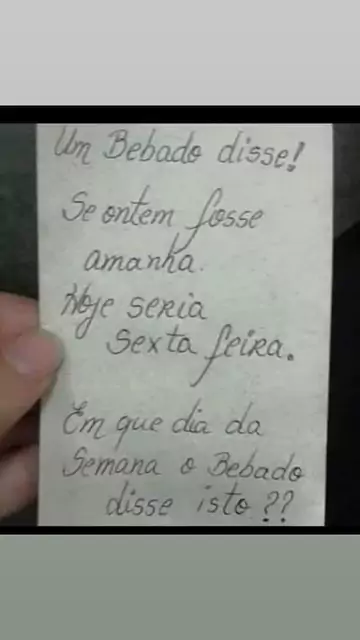 Um Bebado disse!
Se ontem fosse
amanha.
Hoje seria
Sexta feira.
Em que dia da
Semana o Bebado
disse isto??